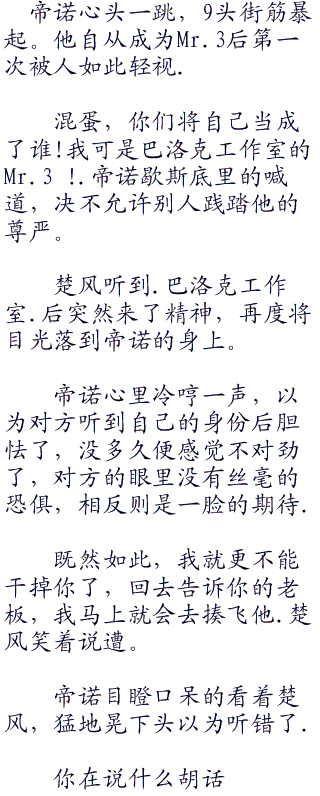 帝诺心头一跳，9头街筋暴
起。他自从成为Mr.3后第一
次被人如此轻视.
混蛋，你们将自己当成
了谁!我可是巴洛克工作室的
Mr.3 !.帝诺歇斯底里的喊
道，决不允许别人践踏他的
尊严。
楚风听到.巴洛克工作
室.后突然来了精神，再度将
目光落到帝诺的身上。
帝诺心里冷哼一声，以
为对方听到自己的身份后胆
怯了，没多久便感觉不对劲
了，对方的眼里没有丝毫的
恐俱，相反则是一脸的期待.
既然如此，我就更不能
干掉你了，回去告诉你的老
板，我马上就会去揍飞他.楚
风笑着说遭。
帝诺目瞪口呆的看着楚
风，猛地晃下头以为听错了.
你在说什么胡话